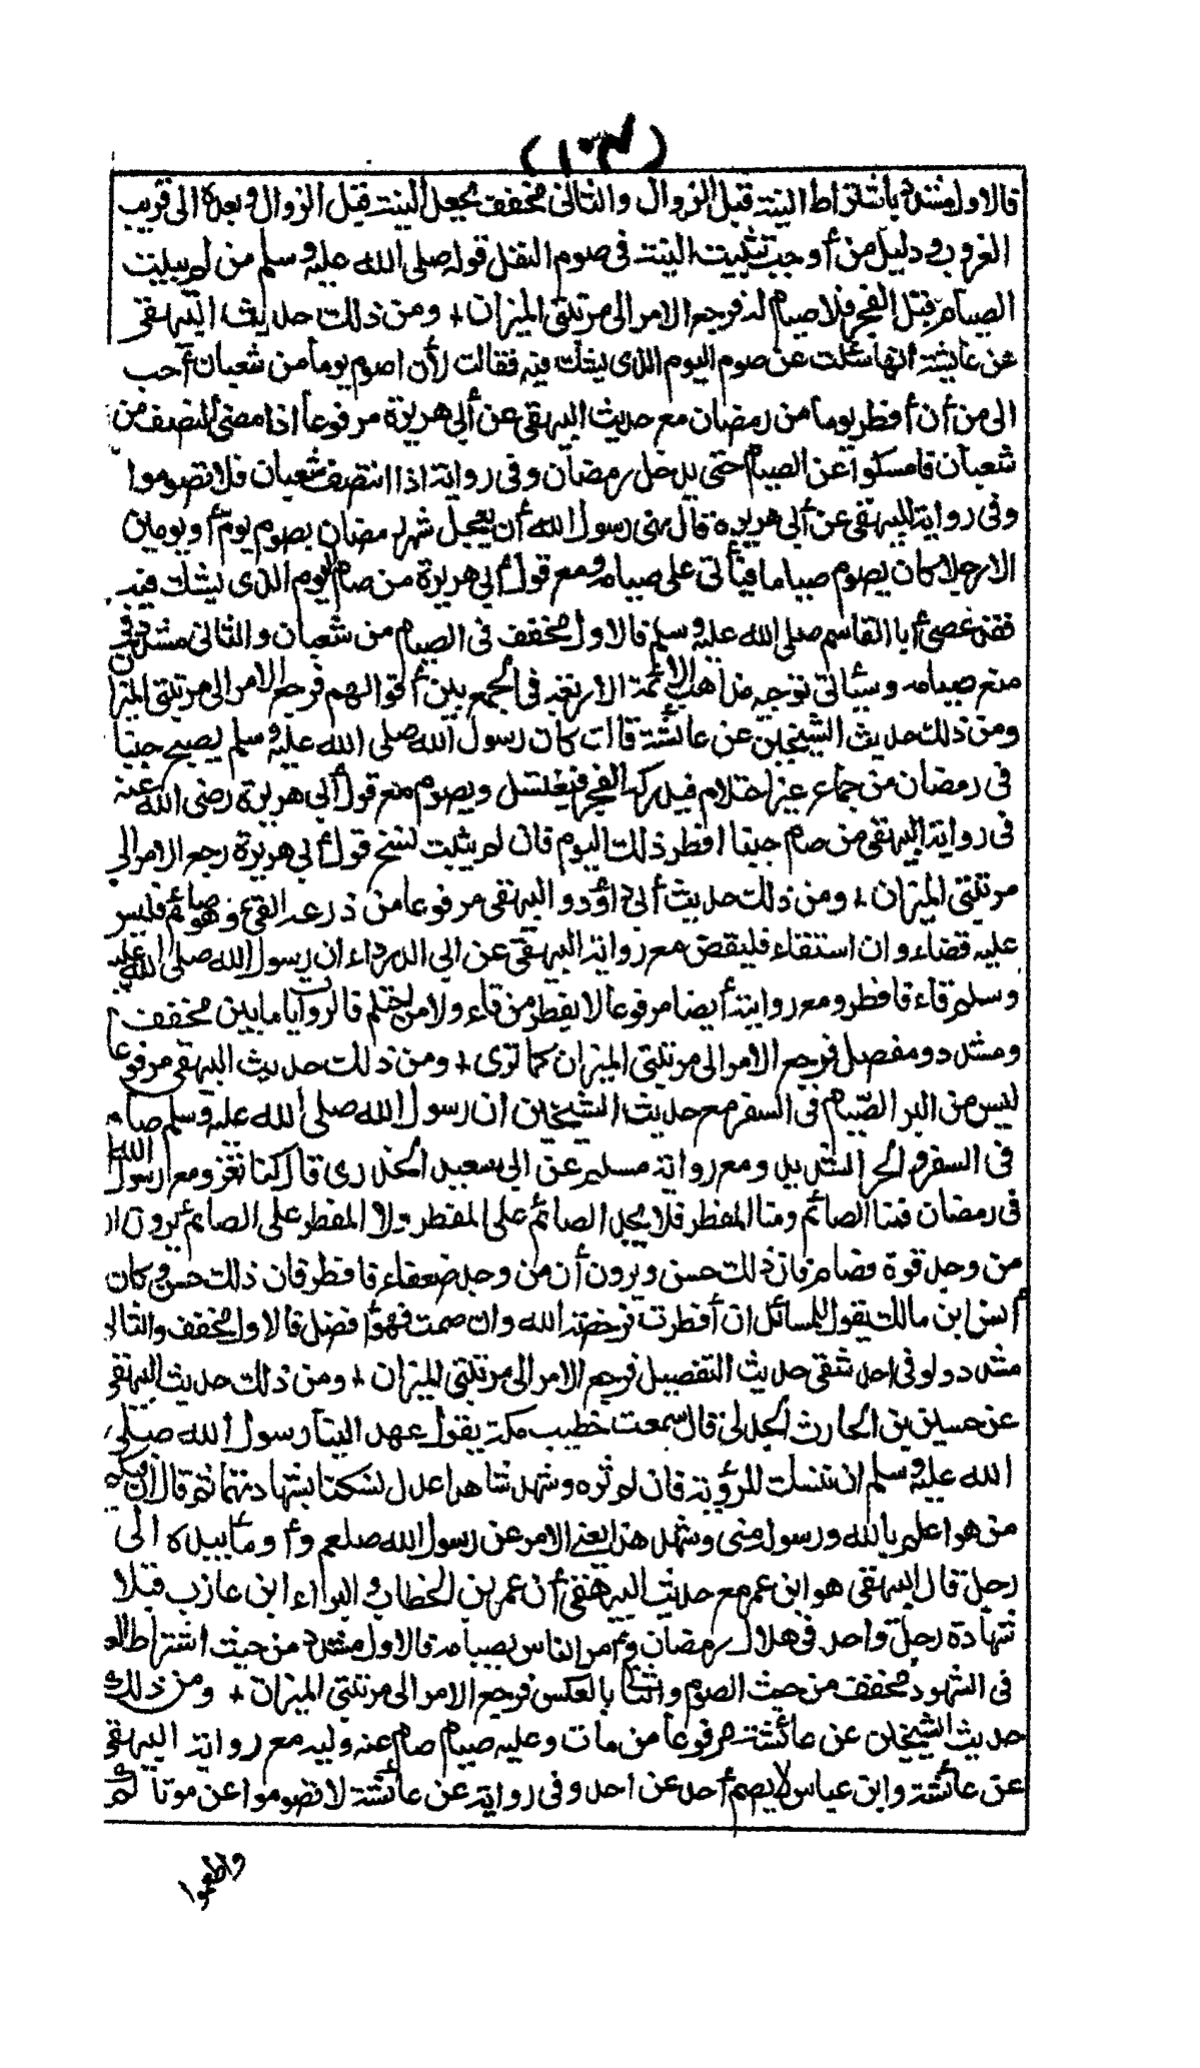 (١٠٣)
فالاول مشدد باشتراط النية قبل الزوال والثانى مخفف بجعل النية قبل الزوال وبعده الى قريب
الغروب ودليل من أوجب تثبيت النية فى صوم النفل قوله صلى الله عليه وسلم من لم يبيت
الصيام قبل الفجر فلا صيام له فرجع الامر الى مرتبتى الميزان + ومن ذلك حديث البيهقى
عن عائشة انها سئلت عن صوم اليوم الذى يشك فيه فقالت لأن اصوم يوما من شعبان أحب
الى من أن أفطر يوما من رمضان مع حديث البيهقى عن أبى هريرة مرفوعا اذا مضى النصف من
شعبان فامسكوا عن الصيام حتى يدخل رمضان وفى رواية اذا انتصف شعبان فلا تصوموا
وفى رواية للبيهقى عن أبى هريرة قال نهى رسول الله أن يتعجل شهر رمضان بصوم يوم أو يومين
الا رجلا كان يصوم صياما فيأتى على صيامه ومع قول أبى هريرة من صام اليوم الذى يشك فيه
فقد عصى أبا القاسم صلى الله عليه وسلم فالاول مخفف فى الصيام من شعبان والثانى مشدد فى
منع صيامه وسيأتى توجيه مذاهب الائمة الاربعة فى الجمع بين أقوالهم فرجع الامر الى مرتبتى الميزان
ومن ذلك حديث الشيخين عن عائشة قالت كان رسول الله صلى الله عليه وسلم يصبح جنبا
فى رمضان من جماع غير احتلام فيدركه الفجر فيغتسل ويصوم مع قول أبى هريرة رضى الله عنه
فى رواية البيهقى من صام جنبا افطر ذلك اليوم فان لم يثبت نسخ قول أبى هريرة رجع الامر الى
مرتبتى الميزان + ومن ذلك حديث أبى داود والبيهقى مرفوعا من ذرعه القئ وهو صائم فليس
عليه قضاء وان استقاء فليقض مع رواية البيهقى عن ابى الدرداء ان رسول الله صلى الله عليه
وسلم قاء فافطر ومع روايته أيضا مرفوعا لا يفطر من قاء ولا من احتلم فالروايا ما بين مخفف
ومشدد ومفصل فرجع الامر الى مرتبتى الميزان كما ترى + ومن ذلك حديث البيهقى مرفوعا
ليس من البر الصيام فى السفر مع حديث الشيخين ان رسول الله صلى الله عليه وسلم صام
فى السفر فى الحر الشديد ومع رواية مسلم عن ابى سعيد الخدرى قال كنا نغزو مع رسول الله
فى رمضان فمنا الصائم ومنا المفطر فلا يجد الصائم على المفطر ولا المفطر على الصائم يرون ان
من وجد قوة فصام فان ذلك حسن ويرون أن من وجد ضعفاء فافطر فان ذلك حسن وكان
أنس ابن مالك يقول للسائل ان أفطرت فرخصة الله وان صمت فهو أفضل فالاول مخفف والثانى
مشدد ولو فى احد شقى حديث التفصيل فرجع الامر الى مرتبتى الميزان + ومن ذلك حديث البيهقى
عن حسين بن الحارث الجدلى قال سمعت خطيب مكة يقول عهد الينا رسول الله صلى
الله عليه وسلم ان ننسك للرؤية فان لم نره وشهد شاهدا عدل نسكنا بشهادتهما ثم قال ان فيكم
من هو اعلم بالله ورسوله منى وشهد هذا يعنى الامر عن رسول الله صلعم وأومأ بيده الى
رجل قال البيهقى هو ابن عمر مع حديث البيهقى أن عمر بن الخطاب والبراء ابن عازب قبلا
شهادة رجل واحد فى هلال رمضان وأمر الناس بصيامه فالاول مشدد من حيث اشتراط العدد
فى الشهود مخفف من حيث الصوم والثانى بالعكس فرجع الامر الى مرتبتى الميزان + ومن ذلك
حديث الشيخين عن عائشة مرفوعا من مات وعليه صيام صام عنه وليه مع رواية البيهقى
عن عائشة وابن عباس لا يصم أحد عن احد وفى رواية عن عائشة لا تصوموا عن موتاكم
واطعموا